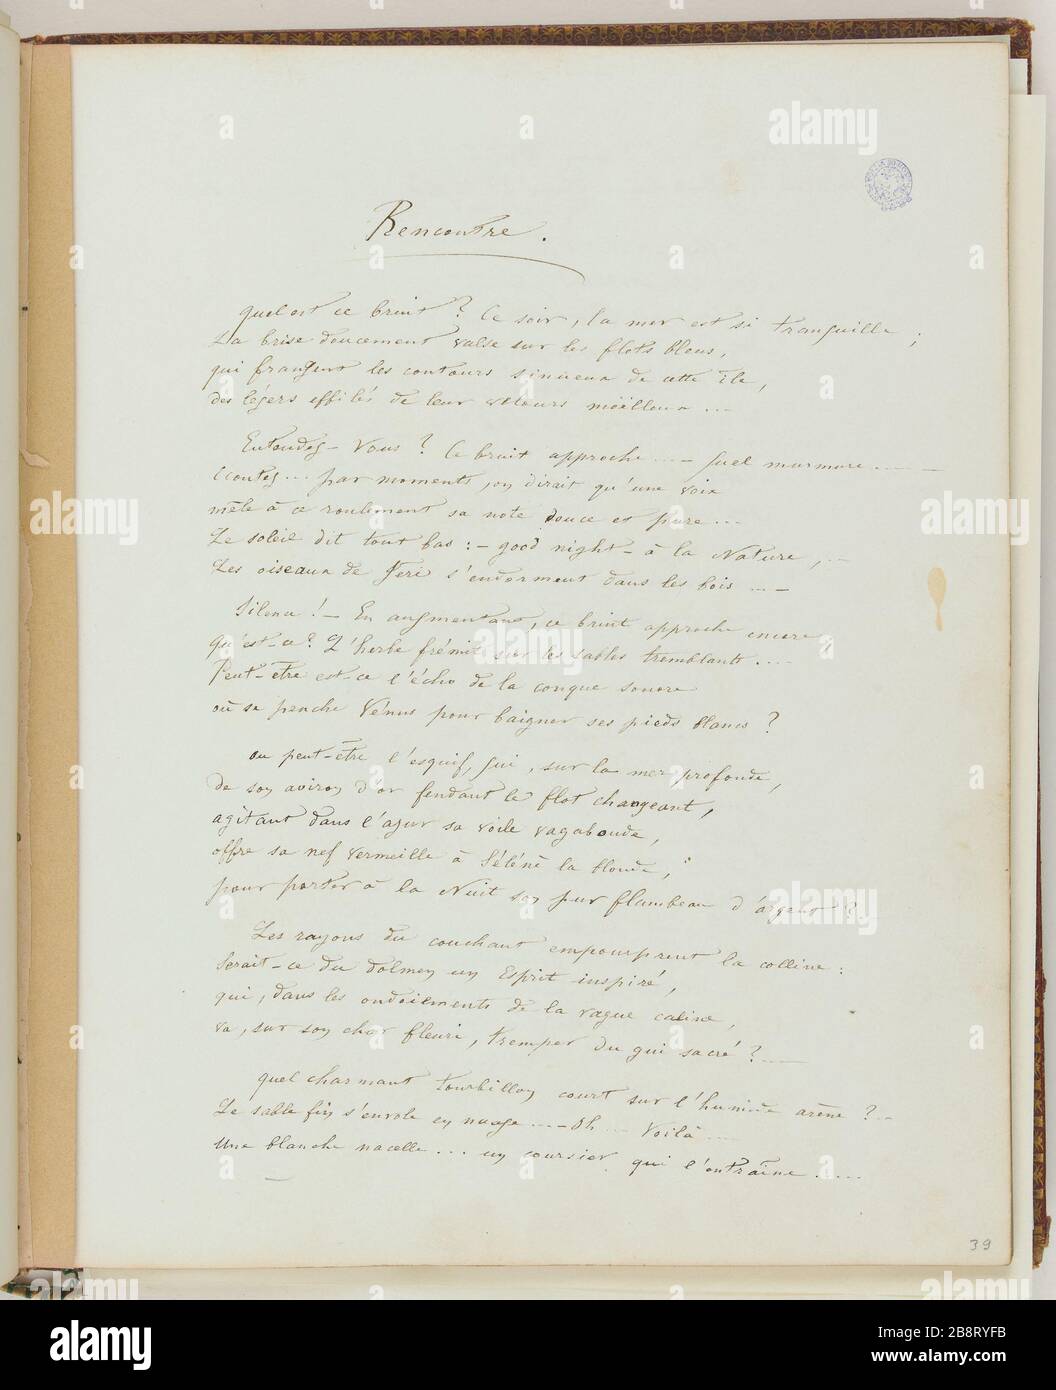 Rencontre.
Quel est ce bruit ? Ce soir, la mer est si tranquille ;
La brise doucement valse sur les flots bleus,
qui frangent les contours sinueux de cette île,
des légers effilés de leur velours moëlleux ...
Entendez-vous ? Ce bruit approche ... - quel murmure ...
Ecoutez ... par moments, on dirait qu'une voix
mêle à ce roulement sa note douce et pure ...
Le soleil dit tout bas : - good night - à la Nature, -
Les oiseaux de Jeri s'endorment dans les bois ... -
Silence ! - En augmentant, ce bruit approche encore
Qu'est-ce ? L'herbe frémit sur les sables tremblants ....
Peut-être est-ce l'écho de la conque sonore
où se penche Vénus pour baigner ses pieds blancs ?
ou peut-être l'esquif, qui, sur la mer profonde,
de son aviron d'or fendant le flot changeant,
agitant dans l'azur sa voile vagabonde,
offre sa nef vermeille à Séléné la blonde,
pour porter à la Nuit son pur flambeau d'argent ? -
Les rayons du couchant empourprent la colline :
Serait-ce du dolmen un Esprit inspiré,
qui, dans les ondoiements de la vague caline,
va, sur son char fleuri, tremper du gui sacré ? -
quel charmant tourbillon court sur l'humide arène ? -
Le sable fin s'envole en nuage ... - Oh ... Voilà ...
Une blanche nacelle ... un coursier qui l'entraîne ....
39
a alamy
alamy
2B8RYFB
www.alamy.com